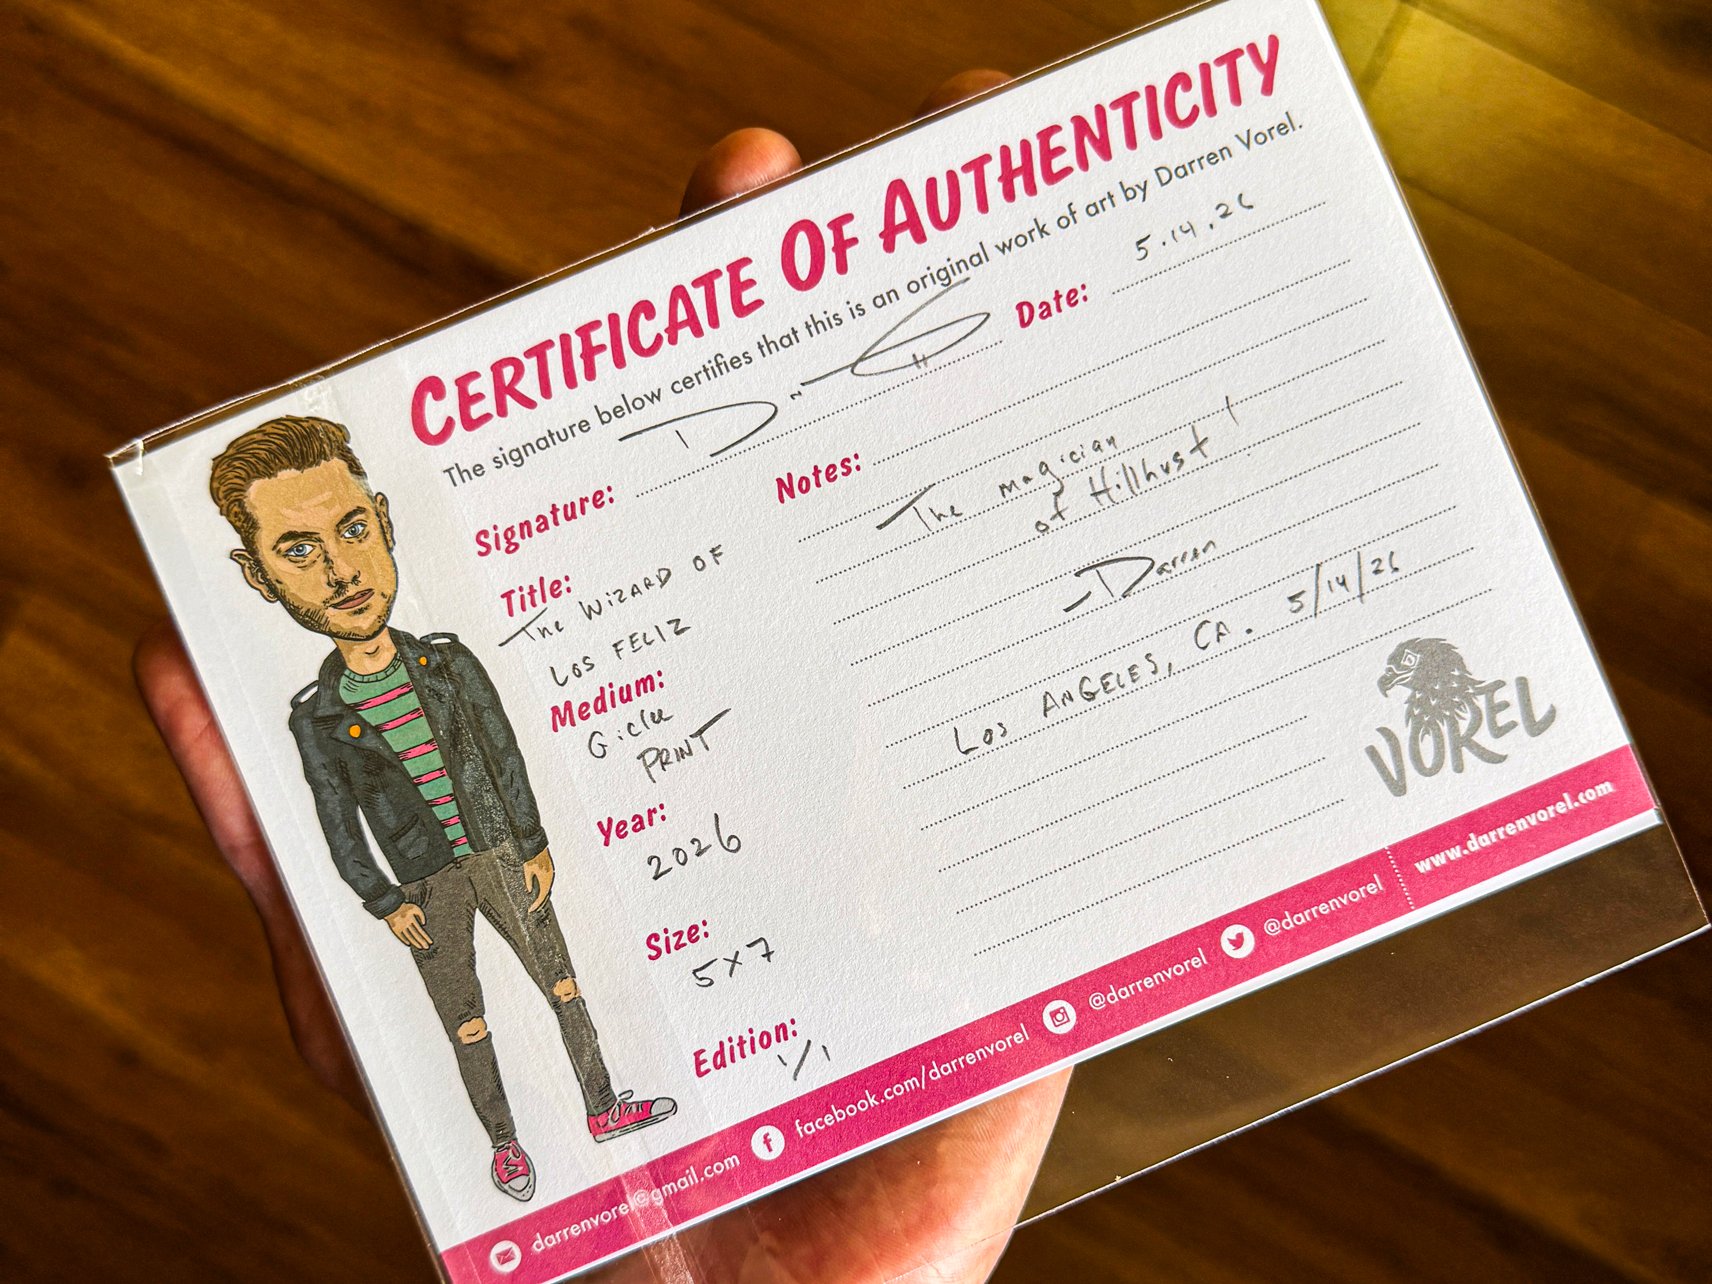 CERTIFICATE OF AUTHENTICITY
The signature below certifies that this is an original work of art by Darren Vorel.
Signature:
Date: 5.14.26
Title:
The WIZARD OF
LOS FELIZ
Medium:
Giclee
PRINT
Year:
2026
Size:
5x7
Edition:
1/1
Notes:
The magician
of Hillhurst!
-Darren
LOS ANGELES, CA. 5/14/26
VOREL
darrenvorel@gmail.com
facebook.com/darrenvorel
@darrenvorel
@darrenvorel
www.darrenvorel.com